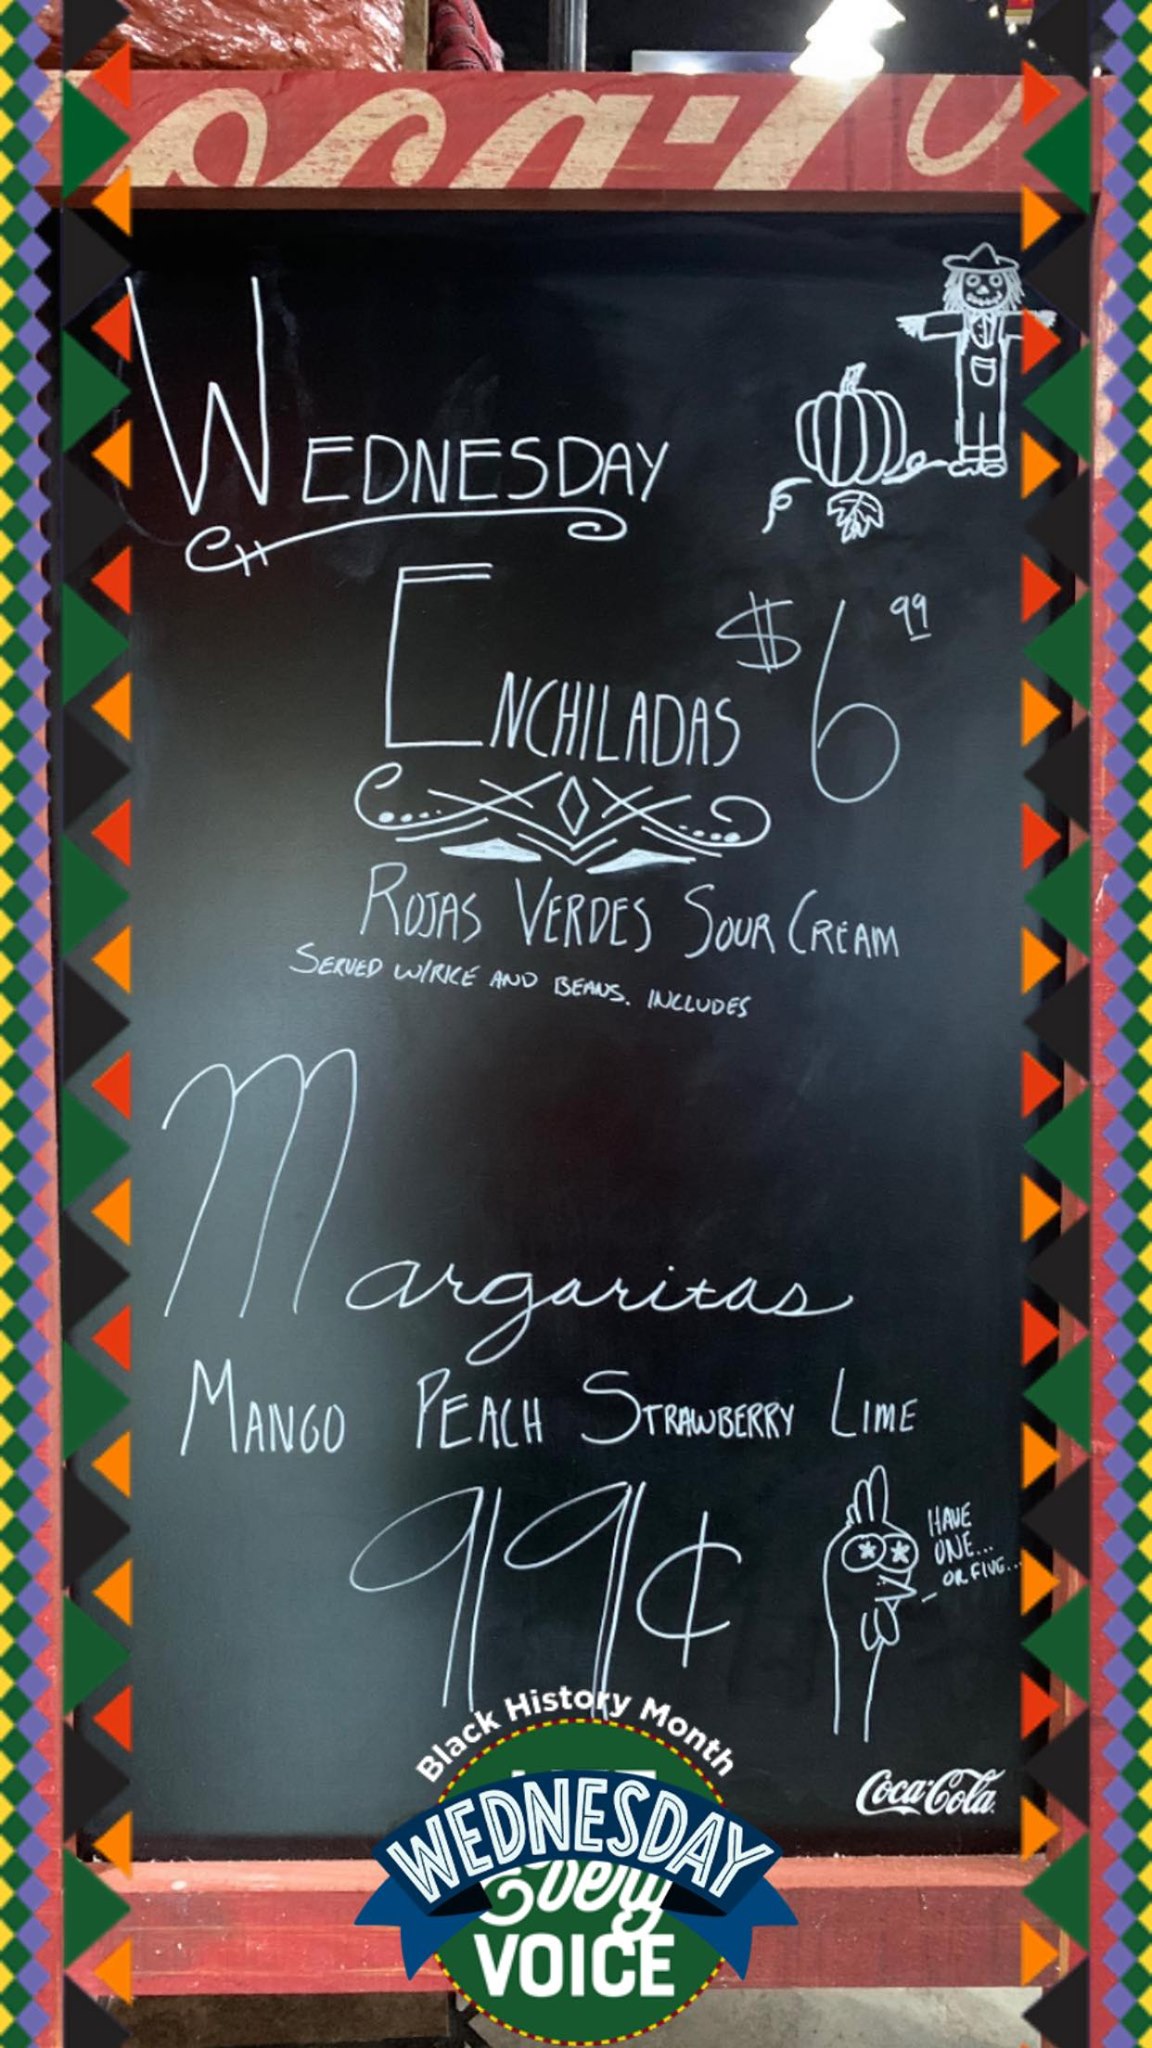 Coca-Co
WEDNESDAY
ENCHILADAS $6 99
ROJAS VERDES SOUR CREAM
SERVED W/RICE AND BEANS. INCLUDES
Margaritas
MANGO PEACH STRAWBERRY LIME
99¢
HAVE
ONE...
OR FIVE...
Black History Month
Coca-Cola
WEDNESDAY
Every
VOICE